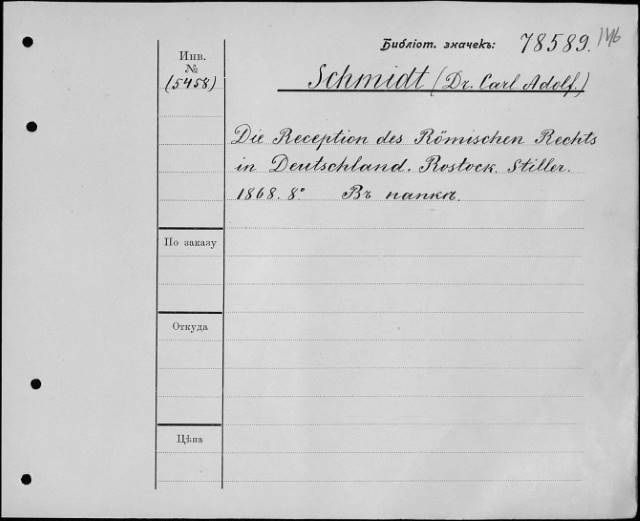 Библіот. значекъ: 78589. 146
Инв.
№
(5458)
Schmidt (Dr. Carl Adolf.)
Die Reception des Römischen Rechts
in Deutschland. Rostock. Stiller.
1868. 8° Въ папкѣ.
По заказу
Откуда
Цѣна